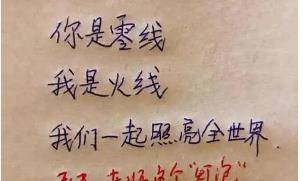 你是零线
我是火线
我们一起照亮全世界.